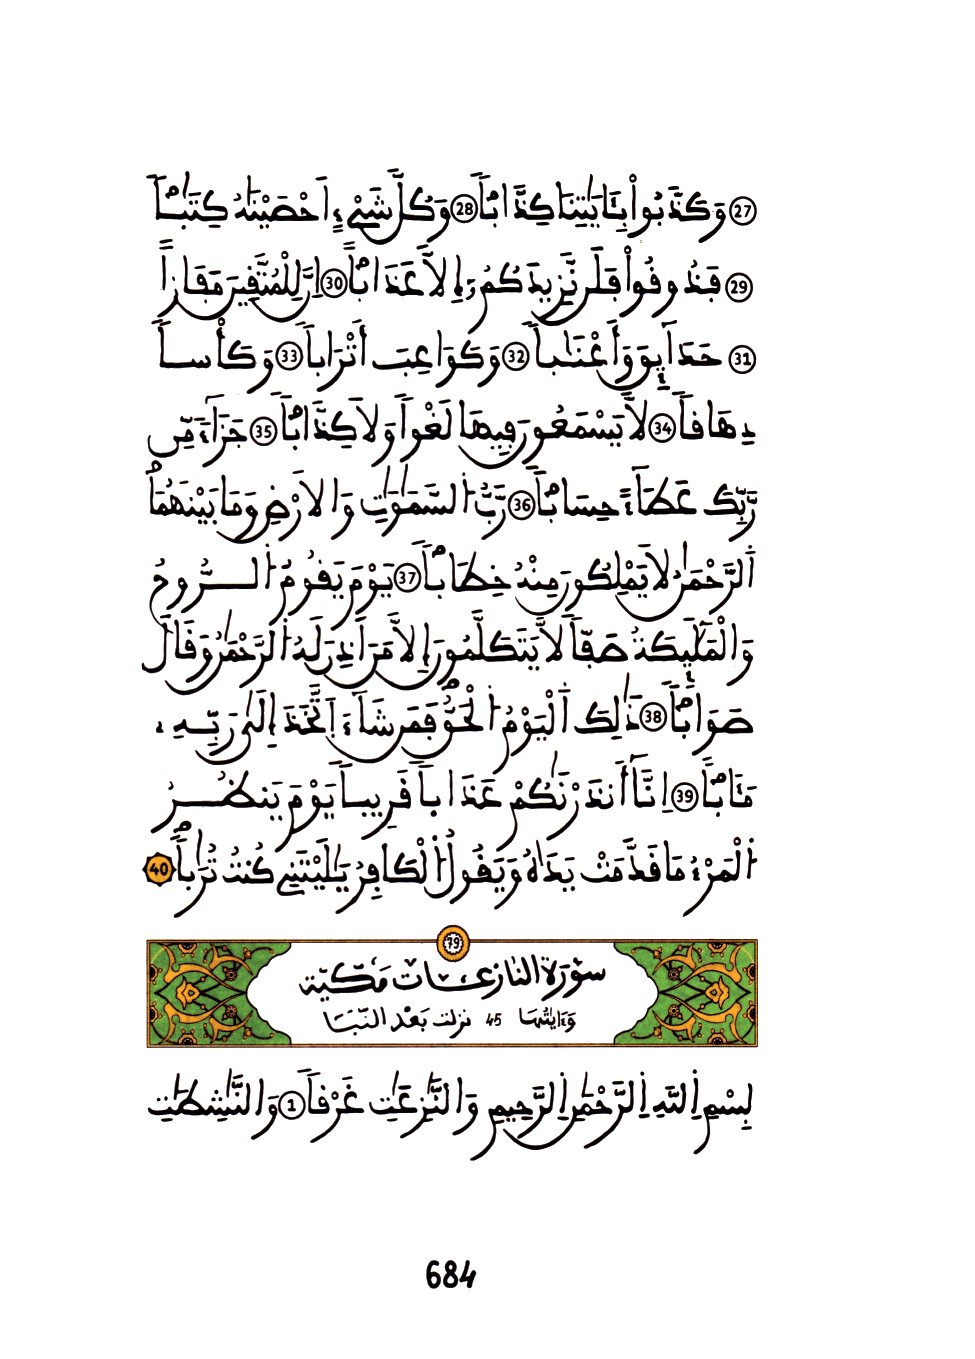 27 وَكَذَّبُواْ بِـَٔايَٰتِنَا كِذَّاباٗ 28 وَكُلَّ شَےْءٍ اَحْصَيْنَٰهُ كِتَٰباٗ
29 فَذُوقُواْ فَلَن نَّزِيدَكُمُۥٓ إِلَّا عَذَاباً 30 اِنَّ لِلْمُتَّقِينَ مَفَازاً
31 حَدَآئِقَ وَأَعْنَٰباٗ 32 وَكَوَاعِبَ أَتْرَاباٗ 33 وَكَأْساٗ
دِهَاقاٗ 34 لَّا يَسْمَعُونَ فِيهَا لَغْواٗ وَلَا كِذَّاباٗ 35 جَزَآءٗ مِّن
رَّبِّكَ عَطَآءً حِسَاباٗ 36 رَّبُّ اُ۬لسَّمَٰوَٰتِ وَالَارْضِ وَمَا بَيْنَهُمَا
اَ۬لرَّحْمَٰنُ لَا يَمْلِكُونَ مِنْهُ خِطَاباٗ 37 يَوْمَ يَقُومُ اُ۬لرُّوحُ
وَالْمَلَٰٓئِكَةُ صَفّاٗ لَّا يَتَكَلَّمُونَ إِلَّا مَنَ اَذِنَ لَهُ اُ۬لرَّحْمَٰنُ وَقَالَ
صَوَاباٗ 38 ذَٰلِكَ اَ۬لْيَوْمُ اُ۬لْحَقُّ فَمَن شَآءَ اَ۪تَّخَذَ إِلَىٰ رَبِّهِۦ
مَـَٔاباً 39 اِنَّآ أَنذَرْنَٰكُمْ عَذَاباٗ قَرِيباٗ يَوْمَ يَنظُرُ
اُ۬لْمَرْءُ مَا قَدَّمَتْ يَدَٰهُ وَيَقُولُ اُ۬لْكَافِرُ يَٰلَيْتَنِے كُنتُ تُرَٰباٗ 40
79
سُورَةُ النازعات مَكّيّة
وَءَايَٰتُهَا 45 نزلت بَعْد النّبَإ
بِسْمِ اِ۬للَّهِ اِ۬لرَّحْمَٰنِ اِ۬لرَّحِيمِ وَالنَّٰزِعَٰتِ غَرْقاٗ 1 وَالنَّٰشِطَٰتِ
684